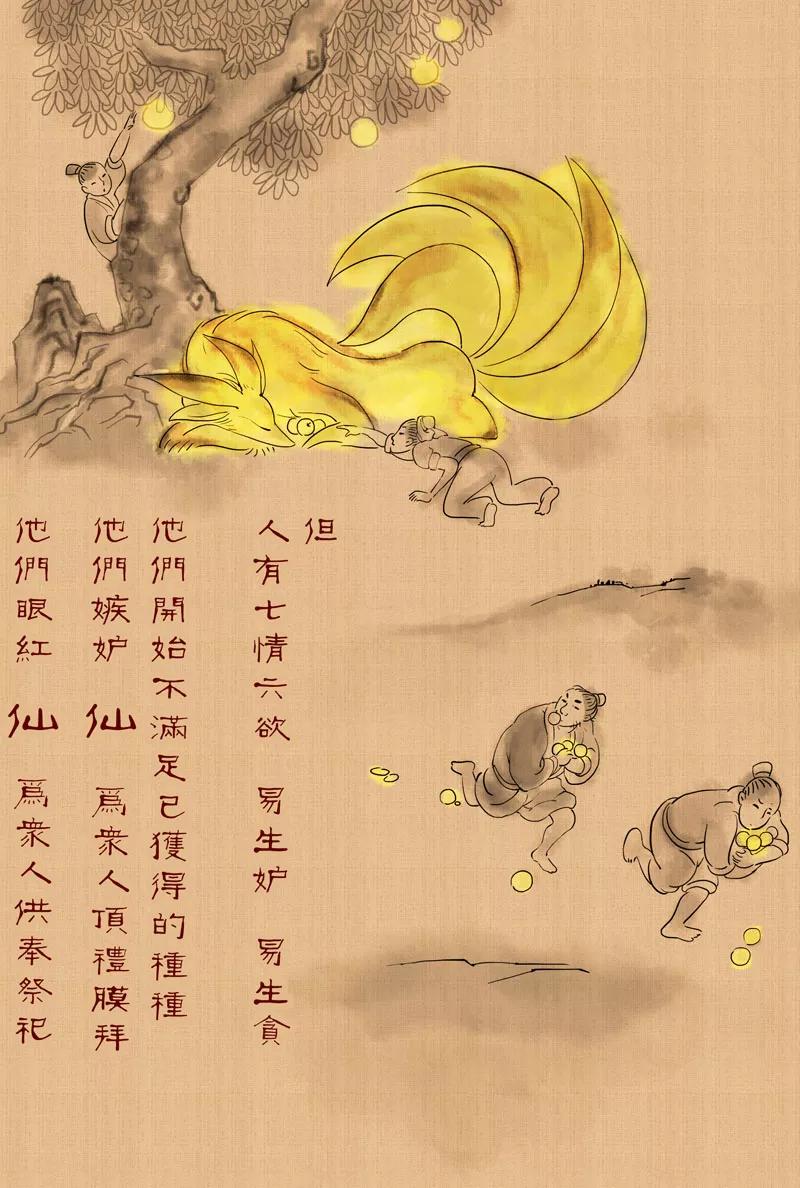 但
人有七情六欲　易生妒　易生貪
他們開始不滿足已獲得的種種
他們嫉妒　仙　爲衆人頂禮膜拜
他們眼紅　仙　爲衆人供奉祭祀